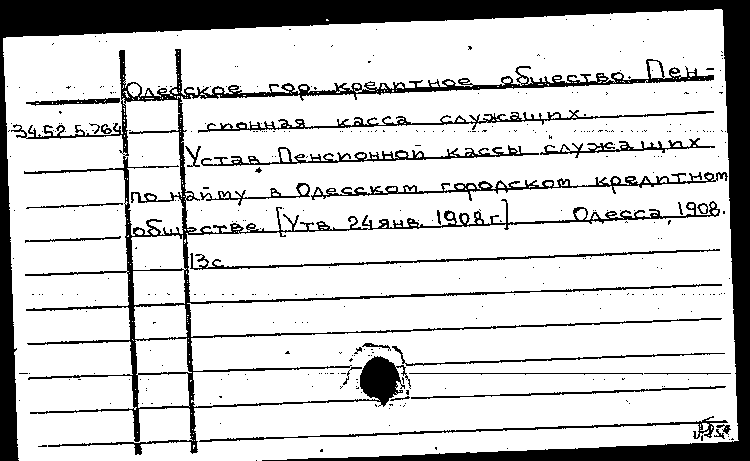 Одесское гор. кредитное общество. Пен-
34.52.5.264 сионная касса служащих.
Устав Пенсионной кассы служащих
по найму в Одесском городском кредитном
обществе. [Утв. 24 янв. 1908 г.] Одесса, 1908.
13 с.